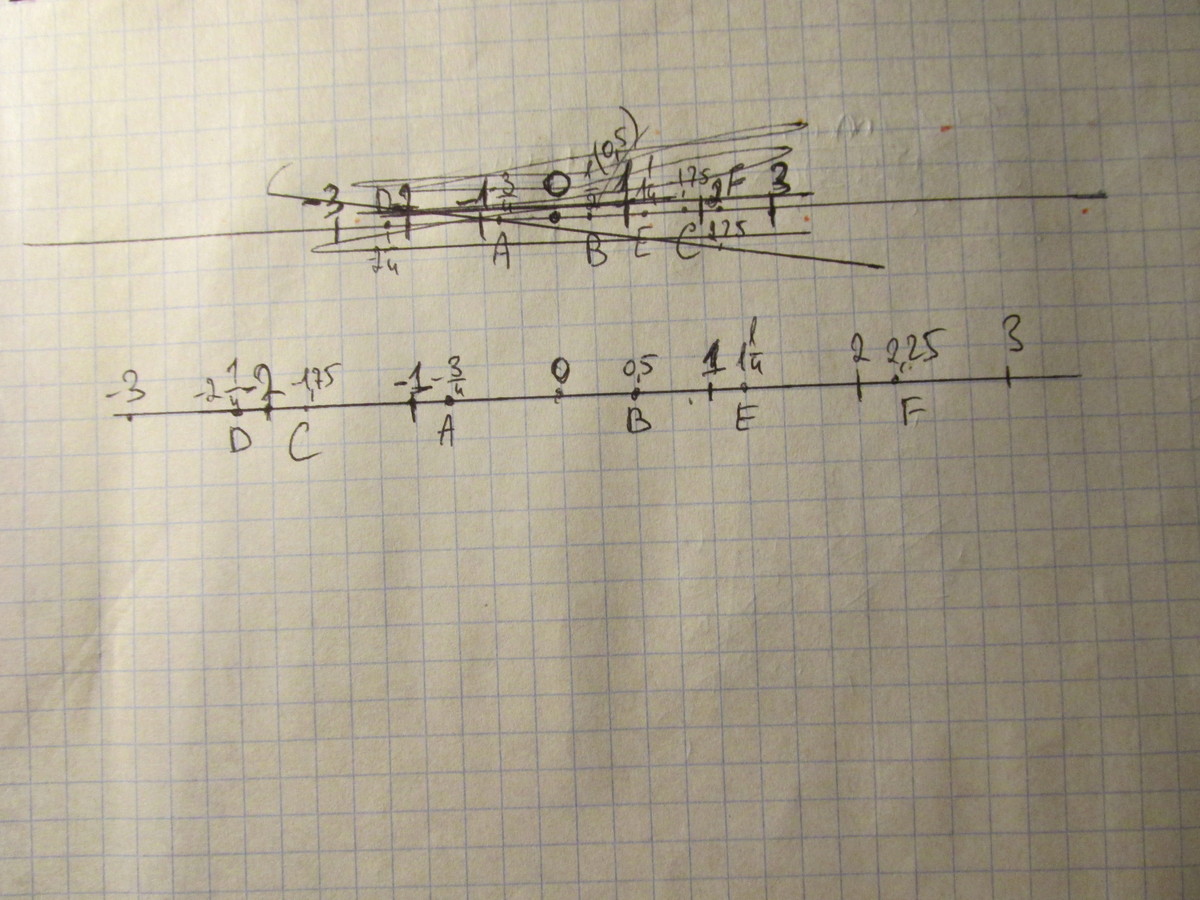 -3 -2 -1 -3/4 0 (0,5) 1 1 1/4 1,75 2 F 3
A B E C 2,25
-3 -2 1/4 -2 -1,75 -1 -3/4 0 0,5 1 1 1/4 2 2,25 3
D C A B E F